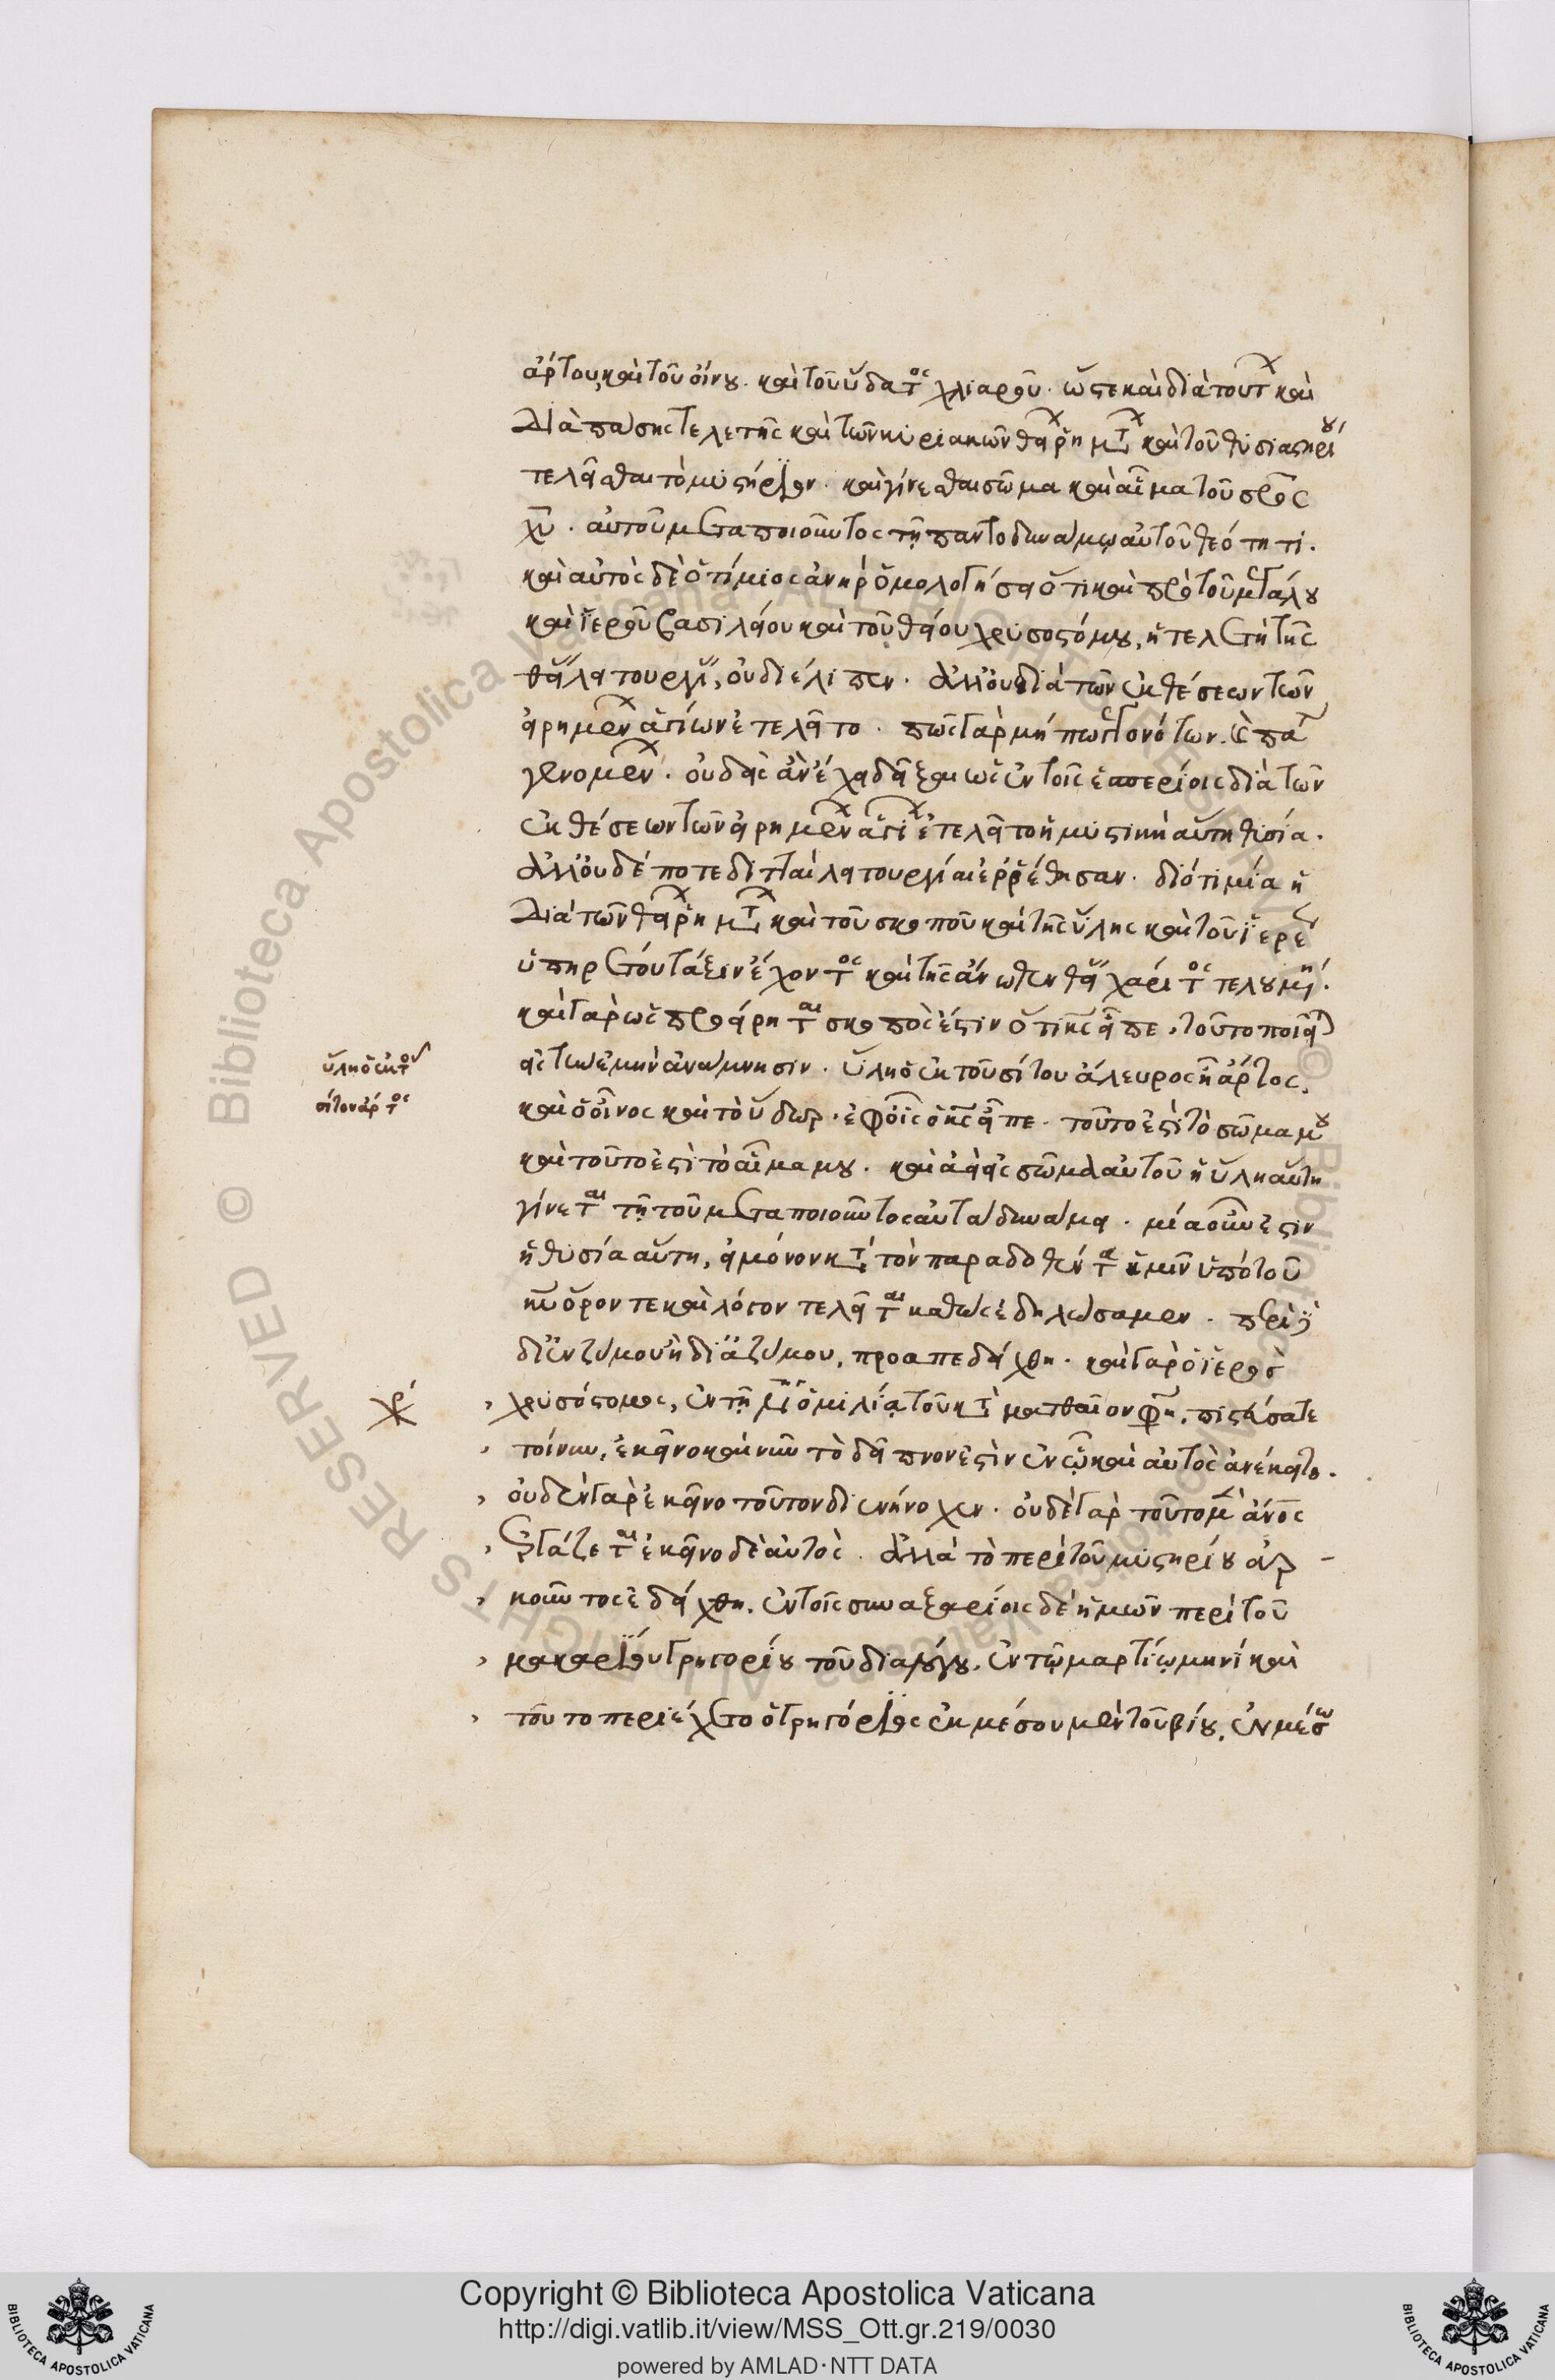 ἄρτου, καὶ τοῦ οἴνου. καὶ τοῦ ὕδατος χλιαροῦ. ὥστε καὶ διὰ τούτων καὶ
διὰ πάσης τελετῆς καὶ τῶν κυριακῶν θείων ῥημάτων καὶ τοῦ θυσιαστηρίου
τελεῖσθαι τὸ μυστήριον. καὶ γίνεσθαι σῶμα καὶ αἷμα τοῦ σρος
χυ. αὐτοῦ μεταποιοῦντος τῇ παντοδυνάμῳ αὐτοῦ θεότητι.
καὶ αὐτὸς δὲ ὁ τίμιος ἀνὴρ ὁμολογήσει ὅτι καὶ πρὸ τοῦ μεγάλου
καὶ ἱεροῦ βασιλείου καὶ τοῦ θείου χρυσοστόμου, ἡ τελετὴ τῆς
θείας λειτουργίας, οὐ διέλιπεν. ἀλλ' οὐ διὰ τῶν ἐκθέσεων τῶν
εἰρημένων ἁγίων ἐτελεῖτο. πῶς γὰρ μήπω γεγονότων.
γενομένων. οὐδεὶς ἂν ἔχῃ δεῖξαι ὡς ἐν τοῖς ἑσπερίοις διὰ τῶν
ἐκθέσεων τῶν εἰρημένων ἁγίων ἐτελεῖτο ἡ μυστικὴ αὕτη θυσία.
ἀλλ' οὐδέποτε διτταὶ λειτουργίαι ἐρρέθησαν. διότι μία ἡ
διὰ τῶν θείων ῥημάτων καὶ τοῦ σκοποῦ καὶ τῆς ὕλης καὶ τοῦ ἱερέως
ὑπηρέτου τάξιν ἔχοντος καὶ τῆς ἄνωθεν θείας χάριτος τελουμένη.
καὶ γὰρ ὡς προείρηται σκοπός ἐστιν ὅτι κς εἶπε, τοῦτο ποιεῖτε
εἰς τὴν ἐμὴν ἀνάμνησιν. ὕλη ὁ ἐκ τοῦ σίτου ἀλευρος ἢ ἄρτος.
καὶ ὁ οἶνος καὶ τὸ ὕδωρ. ἐφ' οἷς ὁ κς εἶπε. τοῦτό ἐστι τὸ σῶμα μου
καὶ τοῦτό ἐστι τὸ αἷμα μου. καὶ ἀεὶ εἰς σῶμα αὐτοῦ ἡ ὕλη αὕτη
γίνεται τῇ τοῦ μεταποιοῦντος αὐτὰ δυνάμει. μία οὖν ἐστιν
ἡ θυσία αὕτη, εἰ μόνον κατὰ τὸν παραδοθέντα ἡμῖν ὑπὸ τοῦ
κυ ὅρον τε καὶ λόγον τελεῖται καθὼς ἐδηλώσαμεν. περὶ
δι' ἐνζύμου ἢ δι' ἀζύμου, προαπεδείχθη. καὶ γὰρ ὁ ἱερὸς
χρυσόστομος, ἐν τῇ ὁμιλίᾳ τοῦ κατὰ ματθαῖον φησι, πιστεύσατε
τοίνυν, ἐκεῖνο καὶ νῦν τὸ δεῖπνόν ἐστιν ἐν ᾧ καὶ αὐτὸς ἀνέκειτο.
οὐδὲν γὰρ ἐκεῖνο τοῦτον διενήνοχεν. οὐδὲ γὰρ τοῦτο μὲν ἀνος
ἐργάζεται ἐκεῖνο δὲ αὐτός. ἀλλὰ τὸ περὶ τοῦ μυστηρίου ἀρ-
κούντως ἐδείχθη. ἐν τοῖς συναξαρίοις δὲ ἡμῶν περὶ τοῦ
μακαρίου γρηγορίου τοῦ διαλόγου, ἐν τῷ μαρτίῳ μηνὶ καὶ
τοῦτο περιέχετο ὁ γρηγόριος ἐκ μέσου μὲν τοῦ βίου, ἐν μέσω
ὕλη ὁ ἐκ τοῦ
σίτου ἄρτος